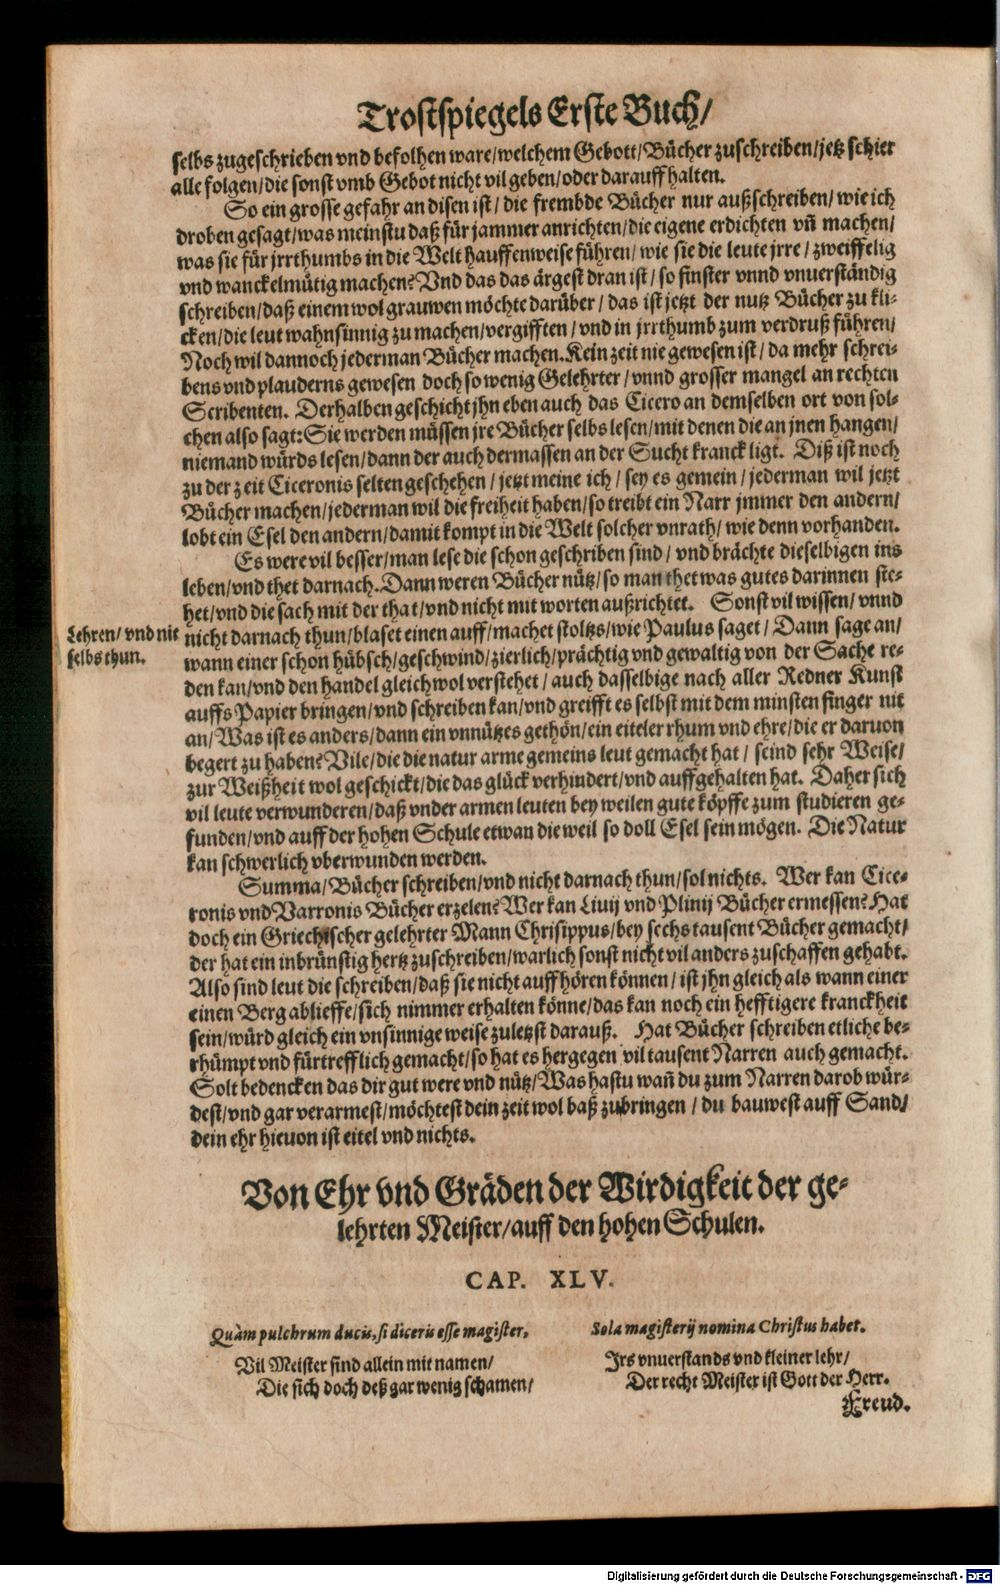 Trostspiegels Erste Buch/
selbs zugeschrieben vnd befolhen ware/welchem Gebott/Bücher zuschreiben/jetz schier
alle folgen/die sonst vmb Gebot nicht vil geben/oder darauff halten.
So ein grosse gefahr an disen ist/ die frembde Bücher nur außschreiben/ wie ich
droben gesagt/was meinstu daß für jammer anrichten/die eigene erdichten vñ machen/
was sie für jrrthumbs in die Welt hauffenweise führen/ wie sie die leute jrre/ zweiffelig
vnd wanckelmütig machen? Vnd das das ärgest dran ist/ so finster vnnd vnuerständig
schreiben/daß einem wol grauwen möchte darüber/ das ist jetzt der nutz Bücher zu kli-
cken/die leut wahnsinnig zu machen/vergifften/ vnd in jrrthumb zum verdruß führen/
Noch wil dannoch jederman Bücher machen. Kein zeit nie gewesen ist/ da mehr schrei-
bens vnd plauderns gewesen doch so wenig Gelehrter/ vnnd grosser mangel an rechten
Scribenten. Derhalben geschicht jhn eben auch das Cicero an demselben ort von sol-
chen also sagt: Sie werden müssen jre Bücher selbs lesen/mit denen die an jnen hangen/
niemand würds lesen/dann der auch dermassen an der Sucht kranck ligt. Diß ist noch
zu der zeit Ciceronis selten geschehen/ jetzt meine ich/ sey es gemein/ jederman wil jetzt
Bücher machen/jederman wil die freiheit haben/so treibt ein Narr jmmer den andern/
lobt ein Esel den andern/damit kompt in die Welt solcher vnrath/ wie denn vorhanden.
Es were vil besser/man lese die schon geschriben sind/ vnd brächte dieselbigen ins
leben/vnd thet darnach. Dann weren Bücher nütz/so man thet was gutes darinnen ste-
het/vnd die sach mit der that/vnd nicht mit worten außrichtet. Sonst vil wissen/ vnnd
Lehren/ vnd nit
selbs thun.
nicht darnach thun/blaset einen auff/machet stoltzs/wie Paulus saget/ Dann sage an/
wann einer schon hübsch/geschwind/zierlich/prächtig vnd gewaltig von der Sache re-
den kan/vnd den handel gleichwol verstehet/ auch dasselbige nach aller Redner Kunst
auffs Papier bringen/vnd schreiben kan/vnd greifft es selbst mit dem minsten finger nit
an/Was ist es anders/dann ein vnnützes gethön/ein eiteler rhum vnd ehre/die er daruon
begert zu haben? Vile/die die natur arme gemeins leut gemacht hat/ seind sehr Weise/
zur Weißheit wol geschickt/die das glück verhindert/vnd auffgehalten hat. Daher sich
vil leute verwunderen/daß vnder armen leuten bey weilen gute köpffe zum studieren ge-
funden/vnd auff der hohen Schule etwan die weil so doll Esel sein mögen. Die Natur
kan schwerlich vberwunden werden.
Summa/Bücher schreiben/vnd nicht darnach thun/sol nichts. Wer kan Cice-
ronis vnd Varronis Bücher erzelen? Wer kan Liuij vnd Plinij Bücher ermessen? Hat
doch ein Griechischer gelehrter Mann Chrisippus/bey sechs tausent Bücher gemacht/
der hat ein inbrünstig hertz zuschreiben/warlich sonst nicht vil anders zuschaffen gehabt.
Also sind leut die schreiben/daß sie nicht auffhören können/ ist jhn gleich als wann einer
einen Berg ablieffe/sich nimmer erhalten könne/das kan noch ein hefftigere kranckheit
sein/würd gleich ein vnsinnige weise zuletzst darauß. Hat Bücher schreiben etliche be-
rhümpt vnd fürtrefflich gemacht/so hat es hergegen vil tausent Narren auch gemacht.
Solt bedencken das dir gut were vnd nütz/Was hastu wañ du zum Narren darob wür-
dest/vnd gar verarmest/möchtest dein zeit wol baß zubringen/ du bauwest auff Sand/
dein ehr hieuon ist eitel vnd nichts.
Von Ehr vnd Gräden der Wirdigkeit der ge-
lehrten Meister/auff den hohen Schulen.
CAP. XLV.
Quàm pulchrum ducis, si diceris esse magister,
Vil Meister sind allein mit namen/
Die sich doch deß gar wenig schamen/
Sola magisterij nomina Christus habet.
Irs vnuerstands vnd kleiner lehr/
Der recht Meister ist Gott der Herr.
Freud.
Digitalisierung gefördert durch die Deutsche Forschungsgemeinschaft - DFG